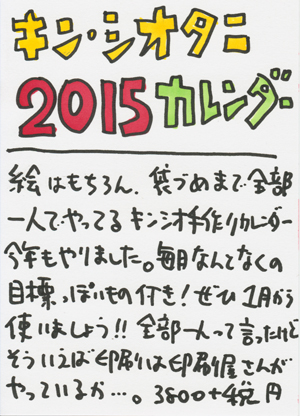 キン・シオタニ
2015カレンダー
絵はもちろん、袋づめまで全部
一人でやってるキンシオ手作りカレンダー
今年もやりました。毎月なんてなくの
目標っぽいもの付き!ぜひ1月から
使いましょう!!全部一人って言ったけど
そういえば印刷は印刷屋さんが
やっているか…。3800+税円